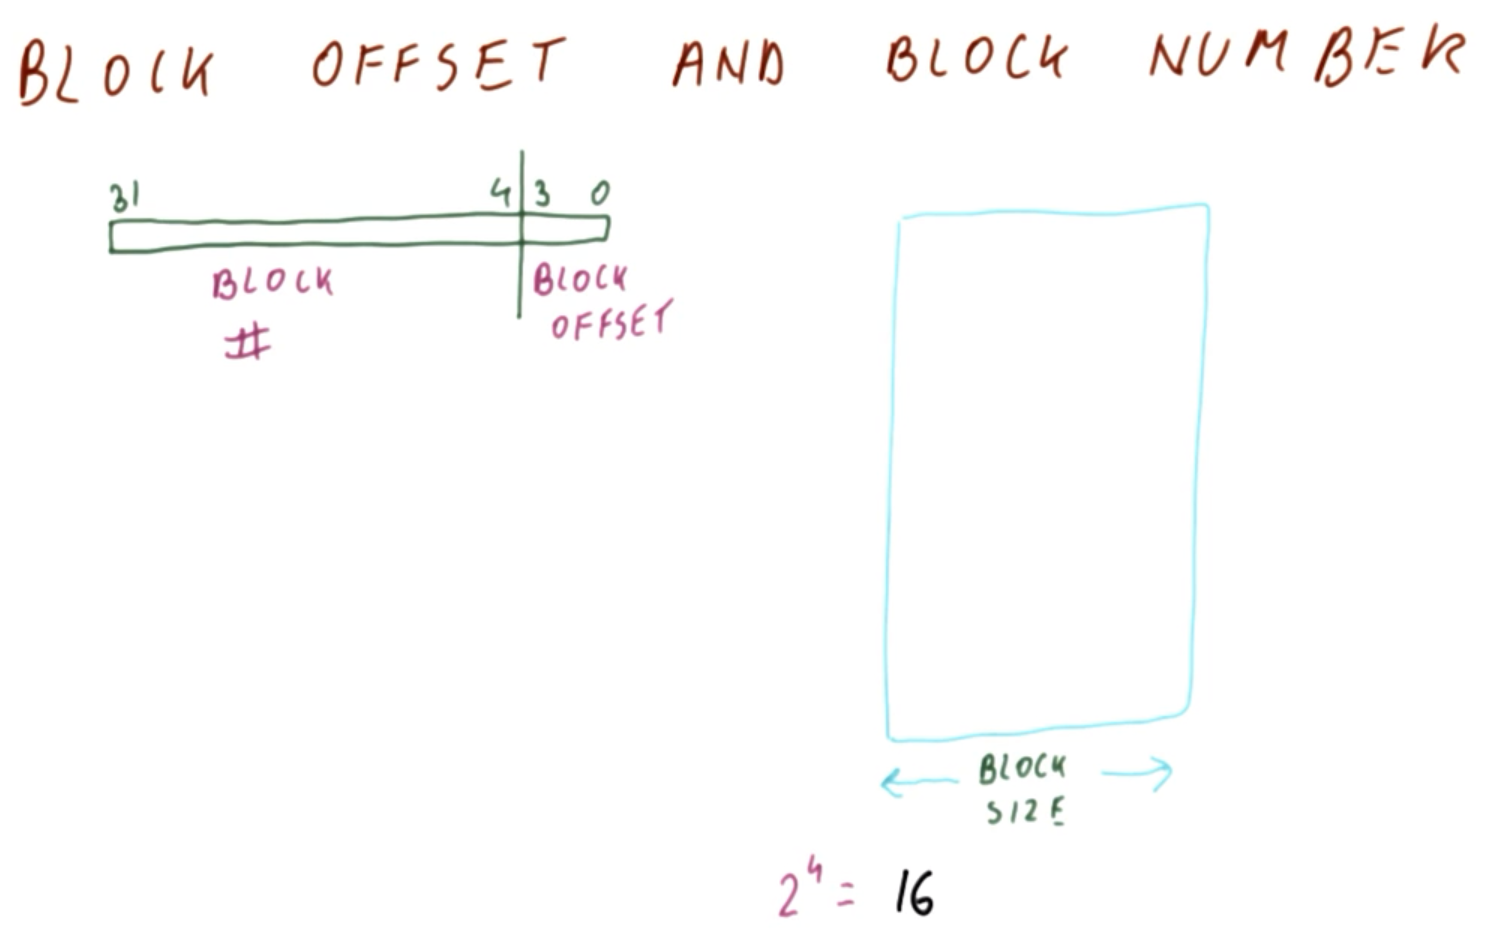 BLOCK OFFSET AND BLOCK NUMBER
31 4 3 0
BLOCK
#
BLOCK
OFFSET
BLOCK
SIZE
2⁴ = 16